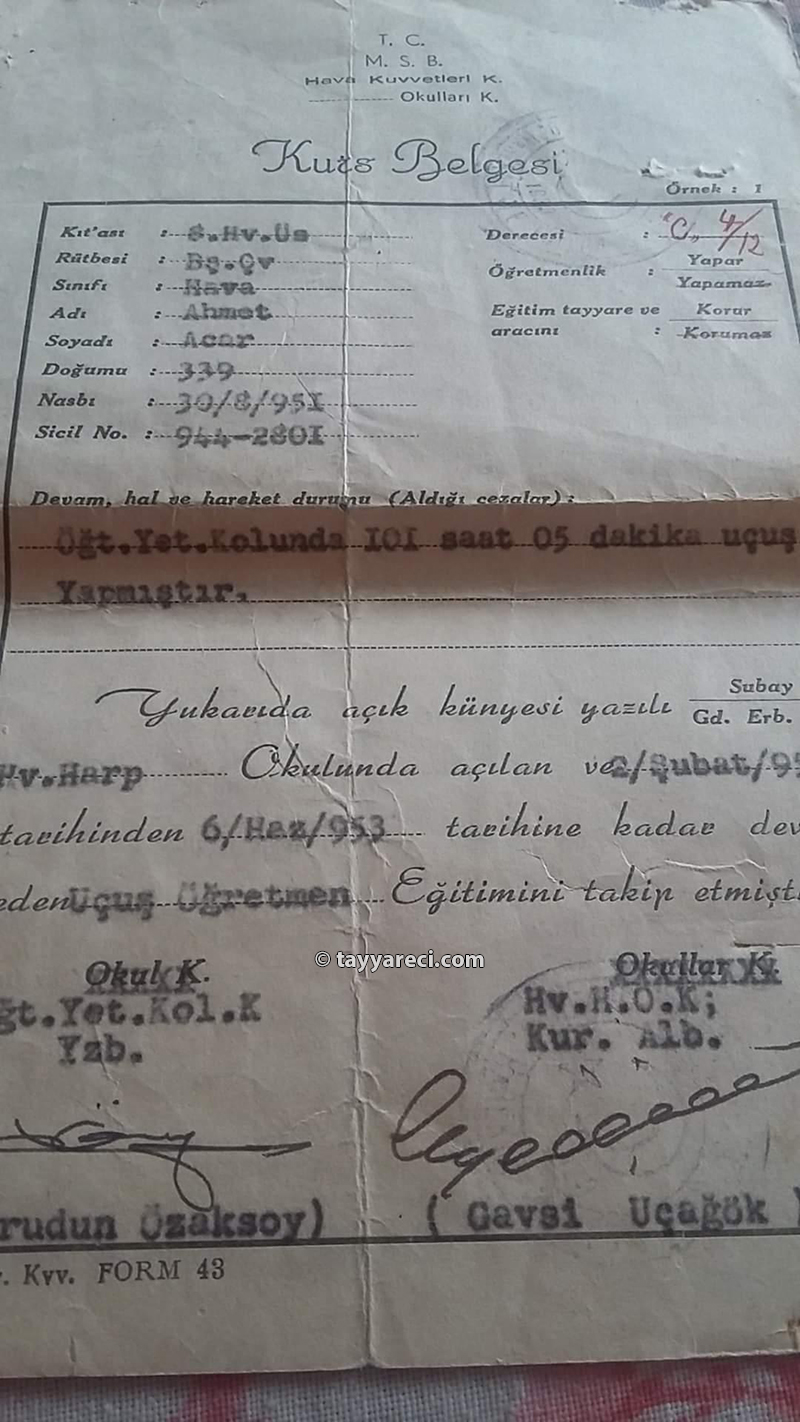 T. C.
M. S. B.
Hava Kuvvetleri K.
Okulları K.
Kurs Belgesi
Örnek : 1
Kıt'ası : 8.Hv.Üs
Rütbesi : Bş.Çv
Sınıfı : Hava
Adı : Ahmet
Soyadı : Acar
Doğumu : 339
Nasbı : 30/8/95I
Sicil No. : 944-280I
Derecesi : "C" 4/12
Öğretmenlik : Yapar
Yapamaz
Eğitim tayyare ve Korur
aracını : Korumaz
Devam, hal ve hareket durumu (Aldığı cezalar) :
Öğt.Yet.Kolunda IOI saat 05 dakika uçuş
Yapmıştır.
Yukarıda açık künyesi yazılı Subay
Gd. Erb.
Hv.Harp Okulunda açılan ve 2/Şubat/95
tarihinden 6/Haz/953 tarihine kadar dev
eden Uçuş Öğretmen Eğitimini takip etmişt
Okul K. Okullar K.
© tayyareci.com
ğt.Yet.Kol.K Hv.H.O.K;
Yzb. Kur. Alb.
rudun Özaksoy) ( Gavsi Uçağök )
. Kvv. FORM 43